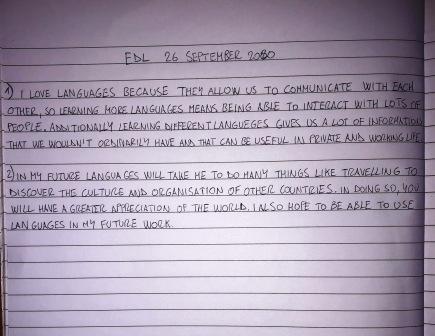 EDL 26 SEPTEMBER 2020
1) I LOVE LANGUAGES BECAUSE THEY ALLOW US TO COMMUNICATE WITH EACH
OTHER, SO LEARNING MORE LANGUAGES MEANS BEING ABLE TO INTERACT WITH LOTS OF
PEOPLE. ADDITIONALLY LEARNING DIFFERENT LANGUEGES GIVES US A LOT OF INFORMATION
THAT WE WOULDN'T ORDINARILY HAVE AND THAT CAN BE USEFUL IN PRIVATE AND WORKING LIFE
2) IN MY FUTURE LANGUAGES WILL TAKE ME TO DO MANY THINGS LIKE TRAVELLING TO
DISCOVER THE CULTURE AND ORGANISATION OF OTHER COUNTRIES. IN DOING SO, YOU
WILL HAVE A GREATER APPRECIATION OF THE WORLD. I ALSO HOPE TO BE ABLE TO USE
LANGUAGES IN MY FUTURE WORK.